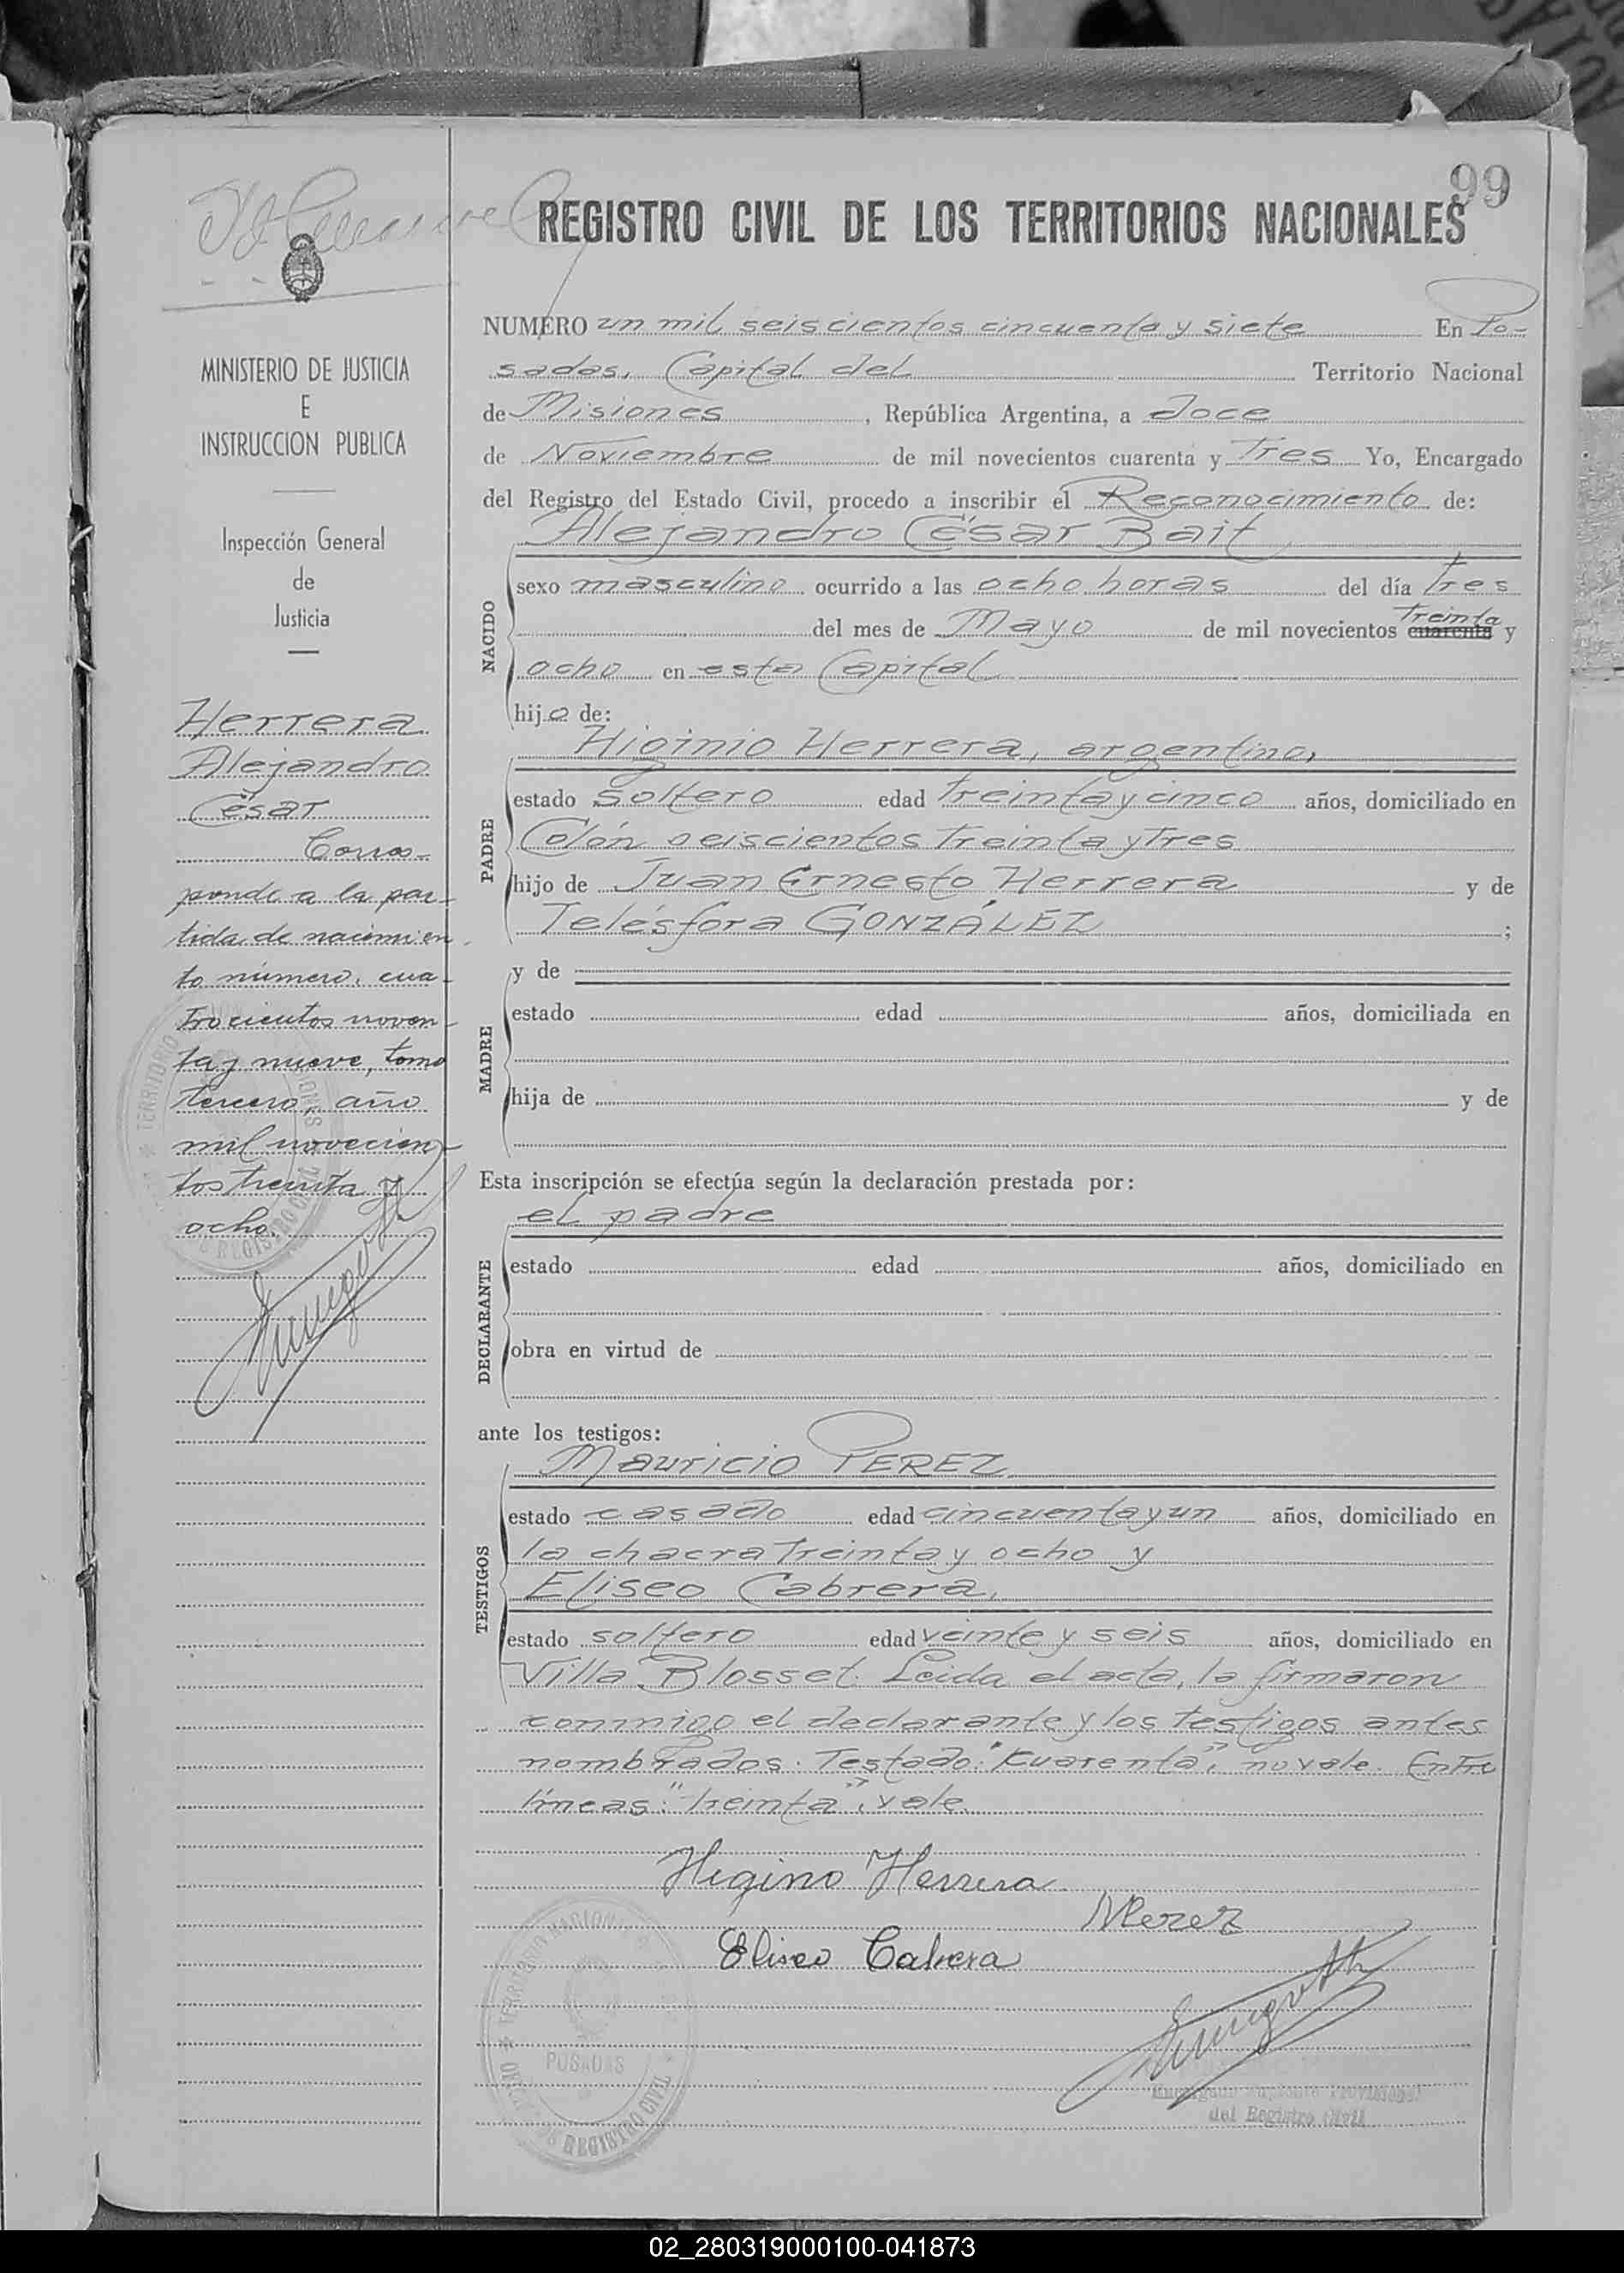 99
REGISTRO CIVIL DE LOS TERRITORIOS NACIONALES
MINISTERIO DE JUSTICIA
E
INSTRUCCION PUBLICA
Inspección General
de
Justicia
Herrera
Alejandro
César
Corres-
ponde a la par-
tida de nacimien-
to número, cua-
trocientos noven-
ta y nueve, tomo
tercero, año
mil novecien-
tos treinta y
ocho.
NUMERO un mil seiscientos cincuenta y siete En Po-
sadas, Capital del Territorio Nacional
de Misiones, República Argentina, a doce
de Noviembre de mil novecientos cuarenta y Tres Yo, Encargado
del Registro del Estado Civil, procedo a inscribir el Reconocimiento de:
Alejandro César Bait
NACIDO
sexo masculino ocurrido a las ocho horas del día tres
treinta
del mes de Mayo de mil novecientos cuarenta y
ocho en esta Capital
hijo de:
Higinio Herrera, argentino,
PADRE
estado soltero edad treinta y cinco años, domiciliado en
Colón seiscientos treinta y tres
hijo de Juan Ernesto Herrera y de
Telésfora GONZÁLEZ ;
MADRE
y de
estado edad años, domiciliada en
hija de y de
Esta inscripción se efectúa según la declaración prestada por:
el padre
DECLARANTE
estado edad años, domiciliado en
obra en virtud de
ante los testigos:
Mauricio PEREZ
TESTIGOS
estado casado edad cincuenta y un años, domiciliado en
la chacra treinta y ocho y
Eliseo Cabrera,
estado soltero edad veinte y seis años, domiciliado en
Villa Blosset. Leida el acta, la firmaron
conmigo el declarante y los testigos antes
nombrados. Testado: "cuarenta", no vale. Entre
líneas: "treinta", vale.
Higino Herrera
MPerez
Eliseo Cabrera
POSADAS
REGISTRO CIVIL
del Registro Civil
02_280319000100-041873